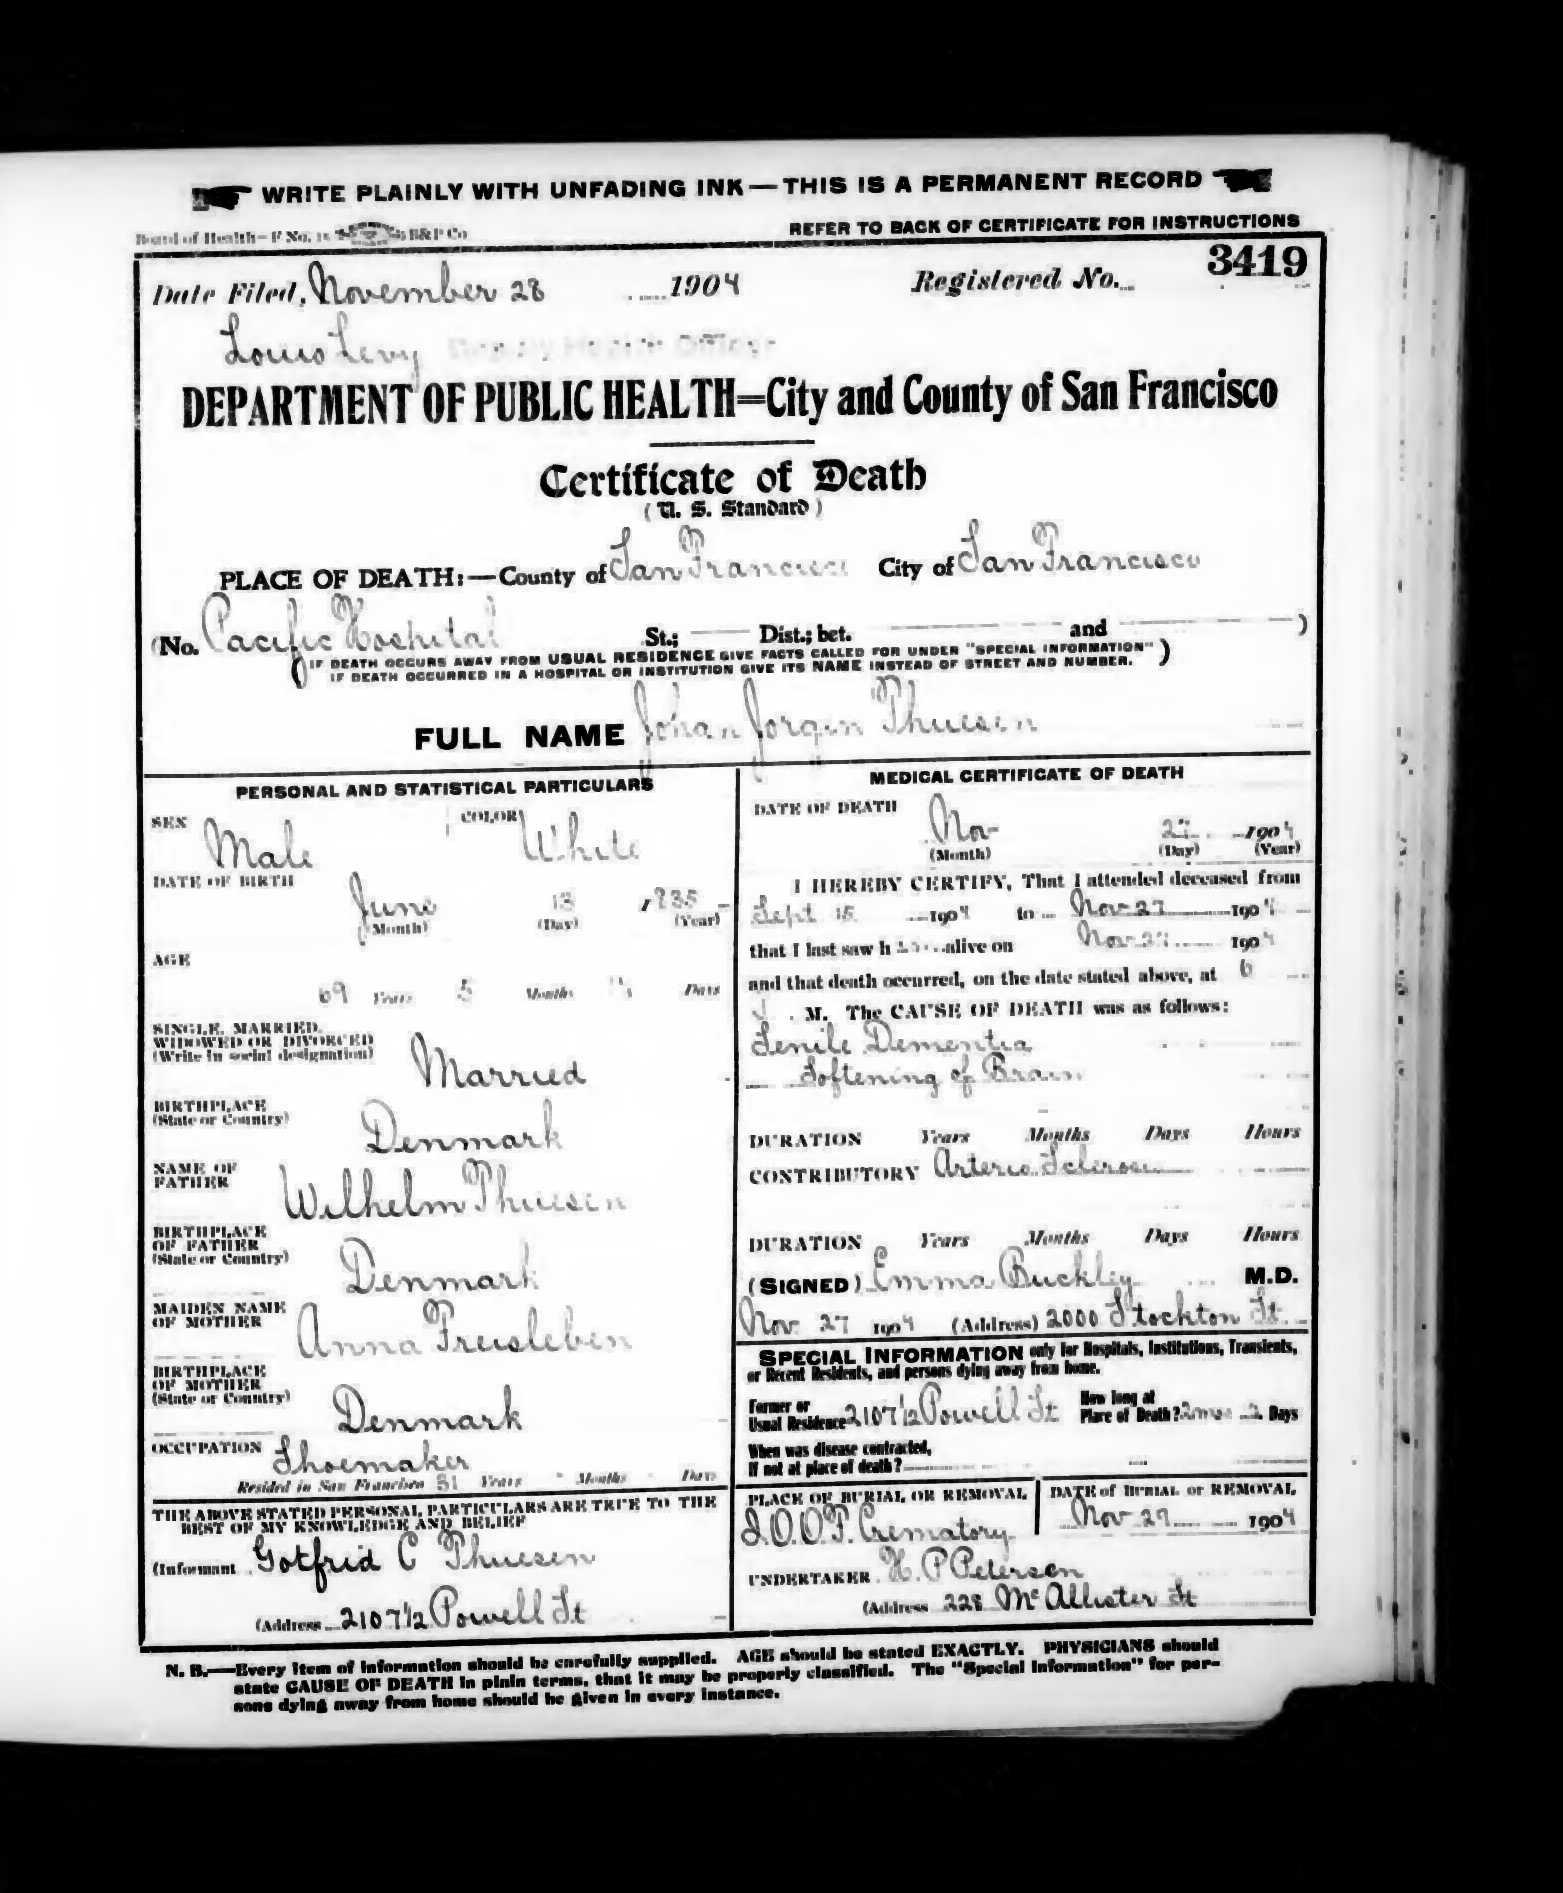 WRITE PLAINLY WITH UNFADING INK—THIS IS A PERMANENT RECORD
Board of Health—F No. 15 B&P Co
REFER TO BACK OF CERTIFICATE FOR INSTRUCTIONS
Date Filed, November 28 1904 Registered No. 3419
Louis Levy Deputy Health Officer
DEPARTMENT OF PUBLIC HEALTH=City and County of San Francisco
Certificate of Death
(U. S. Standard)
PLACE OF DEATH:—County of San Francisco City of San Francisco
(No. Pacific Hospital St.; Dist.; bet. and )
(IF DEATH OCCURS AWAY FROM USUAL RESIDENCE GIVE FACTS CALLED FOR UNDER "SPECIAL INFORMATION"
IF DEATH OCCURRED IN A HOSPITAL OR INSTITUTION GIVE ITS NAME INSTEAD OF STREET AND NUMBER.)
FULL NAME Johan Jorgin Thuesen
PERSONAL AND STATISTICAL PARTICULARS
SEX Male COLOR White
DATE OF BIRTH
June 13 1835
(Month) (Day) (Year)
AGE
69 Years 5 Months Days
SINGLE, MARRIED,
WIDOWED OR DIVORCED
(Write in social designation)
Married
BIRTHPLACE
(State or Country)
Denmark
NAME OF
FATHER
Wilhelm Thuesen
BIRTHPLACE
OF FATHER
(State or Country)
Denmark
MAIDEN NAME
OF MOTHER
Anna Freisleben
BIRTHPLACE
OF MOTHER
(State or Country)
Denmark
OCCUPATION Shoemaker
Resided in San Francisco 31 Years Months Days
THE ABOVE STATED PERSONAL PARTICULARS ARE TRUE TO THE
BEST OF MY KNOWLEDGE AND BELIEF
(Informant Gotfrid C Thuesen
(Address 2107½ Powell St
MEDICAL CERTIFICATE OF DEATH
DATE OF DEATH
Nov 27 1904
(Month) (Day) (Year)
I HEREBY CERTIFY, That I attended deceased from
Sept 15 1904 to Nov 27 1904
that I last saw h alive on Nov 27 1904
and that death occurred, on the date stated above, at 6
M. The CAUSE OF DEATH was as follows:
Senile Dementia
Softening of Brain
DURATION Years Months Days Hours
CONTRIBUTORY Arterio Sclerosis
DURATION Years Months Days Hours
(SIGNED) Emma Buckley M.D.
Nov 27 1904 (Address) 2000 Stockton St.
SPECIAL INFORMATION only for Hospitals, Institutions, Transients,
or Recent Residents, and persons dying away from home.
Former or
Usual Residence 2107½ Powell St
How long at
Place of Death? 2 mos 2 Days
When was disease contracted,
If not at place of death?
PLACE OF BURIAL OR REMOVAL
I.O.O.F. Crematory
DATE of BURIAL or REMOVAL
Nov 29 1904
UNDERTAKER H. P Petersen
(Address 228 McAllister St
N. B.—Every item of information should be carefully supplied. AGE should be stated EXACTLY. PHYSICIANS should
state CAUSE OF DEATH in plain terms, that it may be properly classified. The "Special Information" for per-
sons dying away from home should be given in every instance.